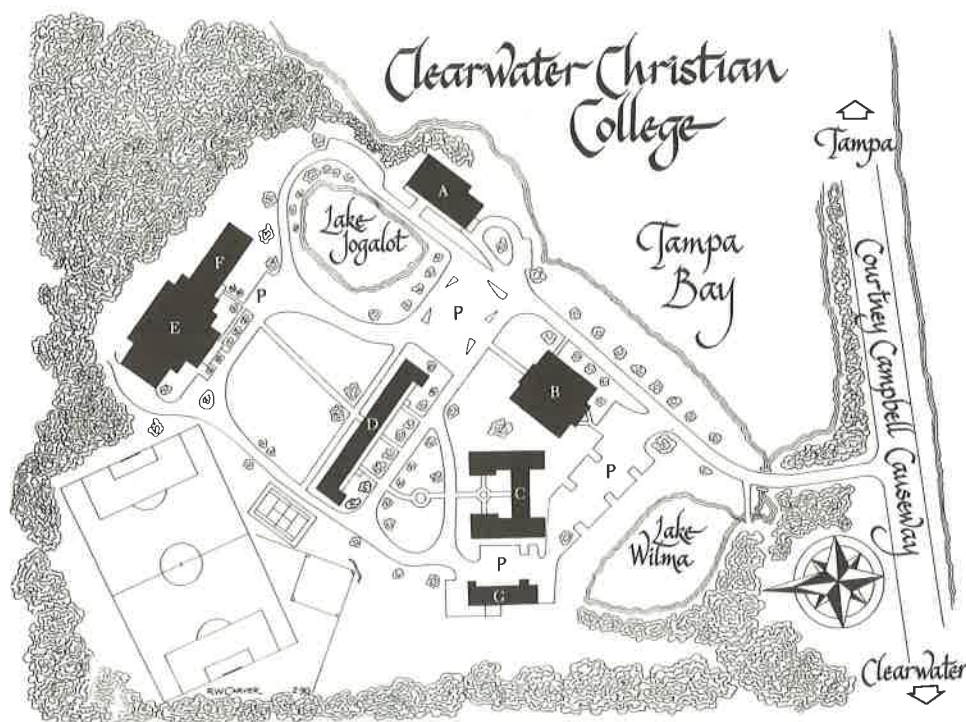 Clearwater Christian
College
Tampa
A
Lake
Jogalot
Tampa
Bay
Courtney Campbell Causeway
F
P
E
P
B
D
P
C
Lake
Wilma
P
G
Clearwater
RWCARVER 2-90